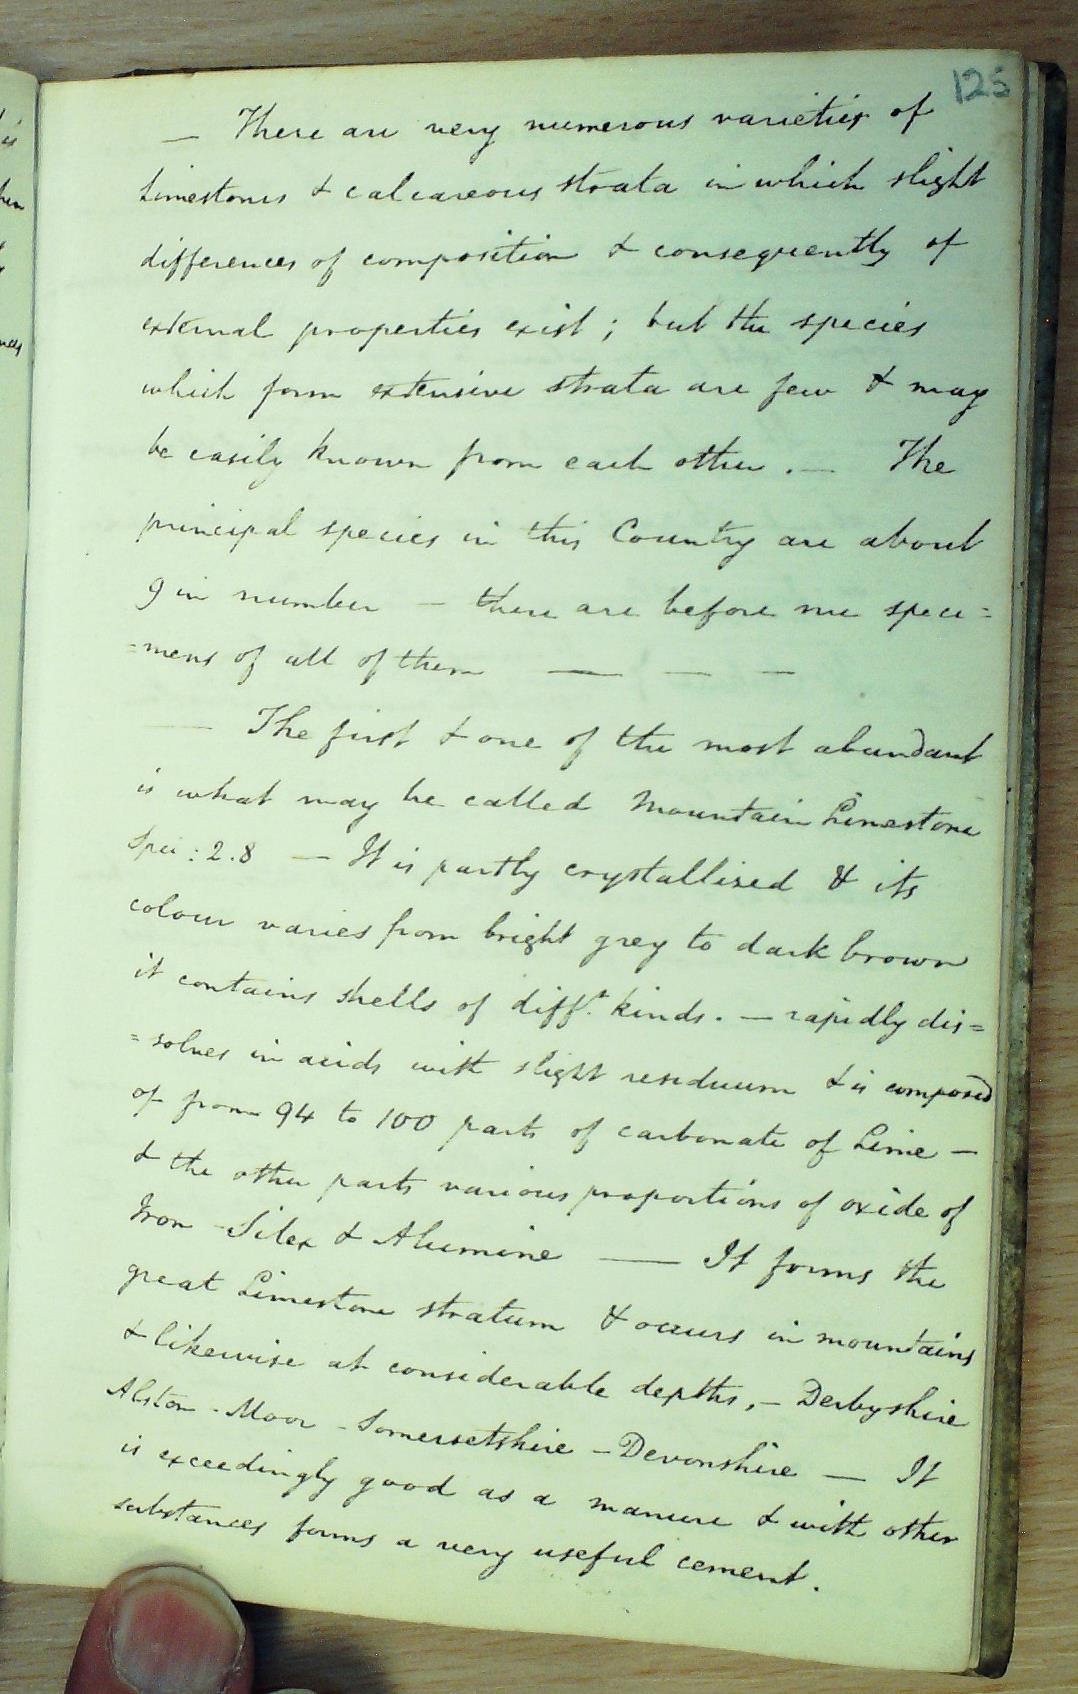 125
— There are very numerous varieties of
limestones & calcareous strata in which slight
differences of composition & consequently of
external properties exist; but the species
which form extensive strata are few & may
be easily known from each other. — The
principal species in this Country are about
9 in number — there are before me speci=
=mens of all of them — — —
— The first & one of the most abundant
is what may be called Mountain Limestone
Spec: 2.8 — It is partly crystallized & its
colour varies from bright grey to dark brown
it contains shells of difft. kinds. — rapidly dis=
=solves in acids with slight residuum & is composed
of from 94 to 100 parts of carbonate of Lime —
& the other parts various proportions of oxide of
Iron - Silex & Alumine — It forms the
great Limestone stratum & occurs in mountains
& likewise at considerable depths, — Derbyshire
Alston - Moor - Somersetshire - Devonshire — It
is exceedingly good as a manure & with other
substances forms a very useful cement.